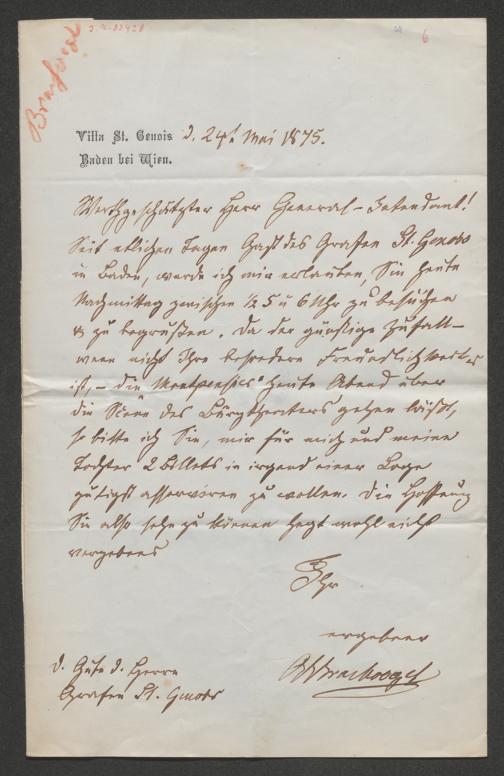 J.N. 83428
6
Villa St. Genois d. 24t Mai 1875.
Baden bei Wien.
Werthgeschätzter Herr General-Intendant!
Seit etlichen Tagen Gast des Grafen St. Genois
in Baden, werde ich mir erlauben, Sie heute
Nachmittag zwischen ½ 5 u 6 Uhr zu besuchen
& zu begrüßen. Da der günstige Zufall –
wenn nicht Ihre besondere Freundlichkeit es
ist, – die heute Abend über
die Scene des Burgtheaters gehen läßt,
so bitte ich Sie, mir für mich und meine
Tochter 2 Billets in irgend einer Loge
gütigst asserviren zu wollen. Die Hoffnung
Sie also sehn zu können hegt wohl nicht
vergebens
Ihr
ergebener
AEBrachvogel
d. Güte d. Herrn
Grafen St. Genois